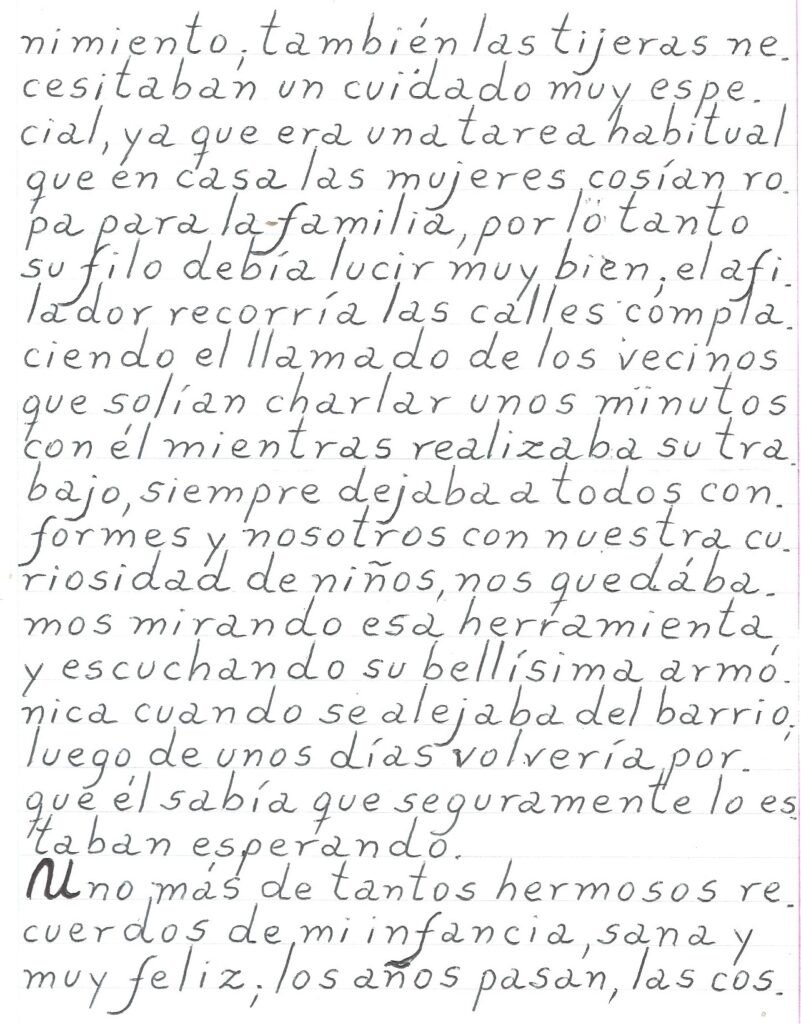 nimiento; también las tijeras ne-
cesitaban un cuidado muy espe-
cial, ya que era una tarea habitual
que en casa las mujeres cosían ro-
pa para la familia, por lo tanto
su filo debía lucir muy bien; el afi-
lador recorría las calles compla-
ciendo el llamado de los vecinos
que solían charlar unos minutos
con él mientras realizaba su tra-
bajo, siempre dejaba a todos con-
formes y nosotros con nuestra cu-
riosidad de niños, nos quedába-
mos mirando esa herramienta
y escuchando su bellísima armó-
nica cuando se alejaba del barrio;
luego de unos días volvería por-
que él sabía que seguramente lo es
taban esperando.
Uno más de tantos hermosos re-
cuerdos de mi infancia, sana y
muy feliz; los años pasan, las cos-